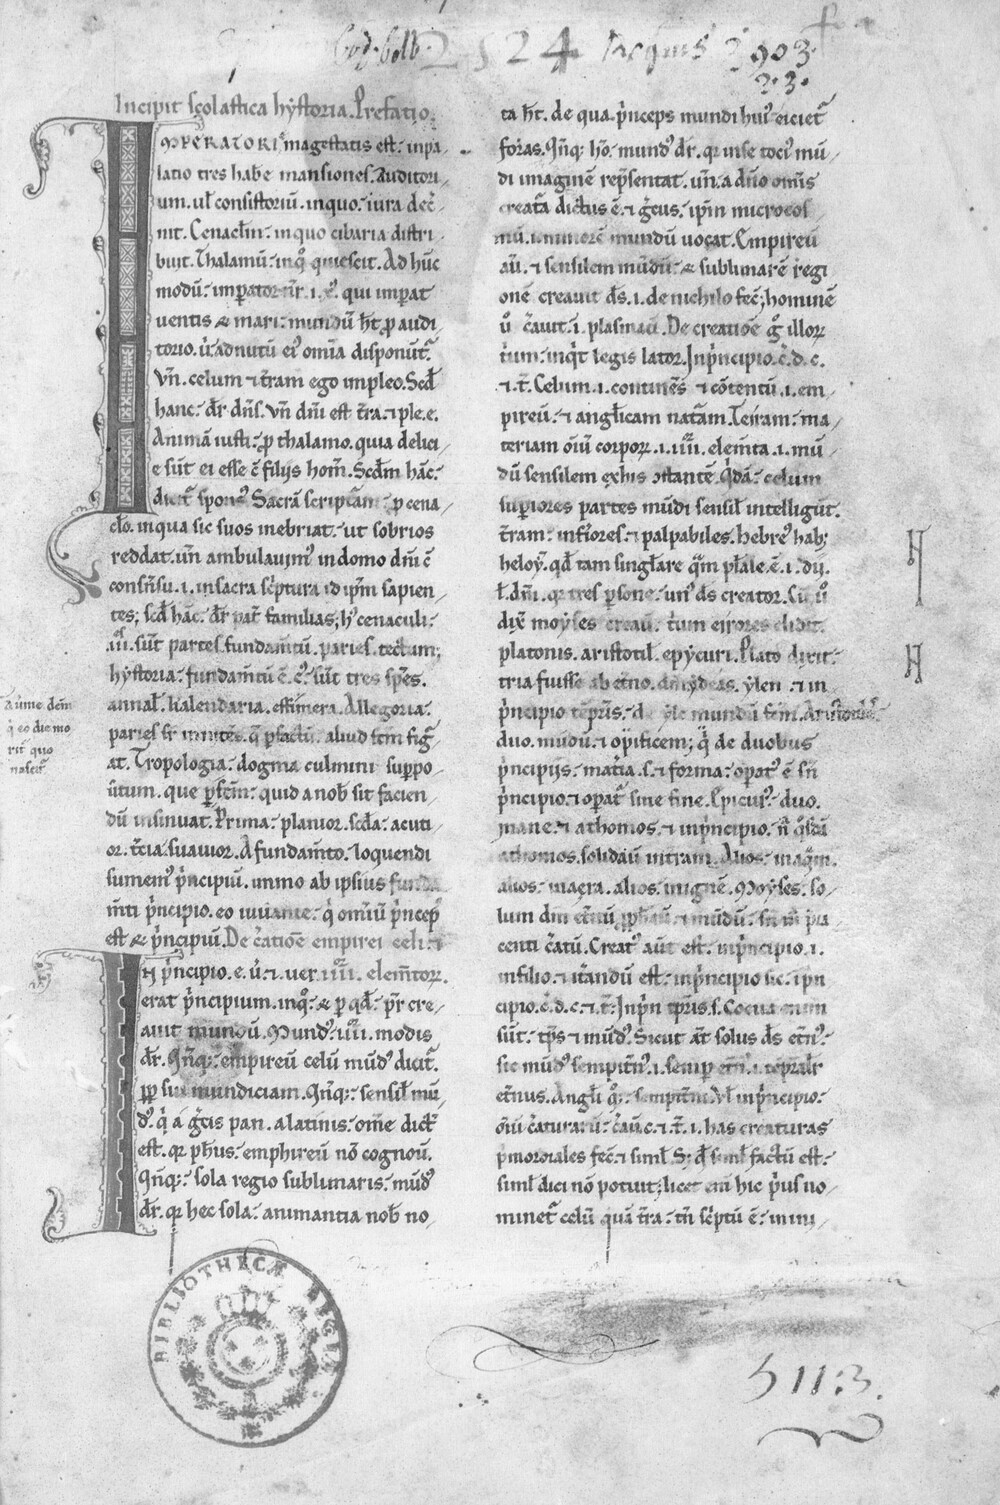 Cod. Colb. 2524
2903.
Incipit scolastica hystoria. Prefatio.
IMPERATORIe magestatis est: in pa-
latio tres habe mansiones. Auditori-
um. ul' consistoriũ. in quo: iura dec̃-
nit. Cenacl'm: in quo cibaria distri-
buit. Thalamũ: in q̊ quiescit. Ad hũc
modũ: impator nr̃. i. x̃. qui impat
uentis & mari: mundũ h̃t ꝓ audi-
torio. u' ad nutũ ei' om̃ia disponũt.
Vñ. celum & t̃ram ego impleo. Scd'
hanc: dr̃ dñs. Vñ dñi est t̃ra. & ple. e.
Animã iusti: ꝓ thalamo. quia delici-
e sũt ei esse c̃ filijs hom̃. Scd'm hãc:
dicit' spons' Sacrã scriptam: ꝓ cena-
cl'o. in qua sic suos inebriat: ut sobrios
reddat. uñ ambulauim' in domo dñi c̃
consñsu. i. in sacra sc'ptura id ip̃m sapien-
tes; scd' hãc: dr̃ pat̃ familias; h' cenaculi:
iii. sũt partes. fundam̃tũ. paries. tectum;
hystoria: fundam̃tũ ẽ. c' sũt tres sp̃es.
annal'. kalendaria. effimera. Allegoria:
paries sr̃ innitẽs. q̃ ꝑ factũ: aliud fc̃m fig̃-
at. Tropologia: dogma culmini suppo-
situm. que ꝑ fc̃m: quid a nob̃ sit facien-
dũ insinuat. Prima: planior. scd̃a: acuti-
or. t̃cia: suauior. A fundam̃to: loquendi
sumem' p'ncipiũ. immo ab ipsius funda-
m̃ti p'ncipio. eo iuuante: q' om̃iũ p'ncep̃s
est & p'ncipiũ. De c'atiõe empirei celi: &
IN p'ncipio. e. u'. & ver. iiii. elem̃tor.
erat p'ncipium. in q̊: & ꝑ qd̃: pr̃ cre-
auit mundũ. Mund' iiii. modis
dr̃. Qñq;: empireũ celũ mũd' dicit'.
ꝓp̃ sui mundiciam. Qñq;: sensil' mũ-
d'. q' a g̃cis pan. a latinis: om̃e dict'
est. qr ph'us: emphireũ nõ cognou̇.
Qñq;: sola regio sublunaris: mũd'
dr̃. qr hec sola: animantia nob̃ no-
ta h̃t. de qua. p'nceps mundi hui' eiciet'
foras. Qñq; ho: mund' dr̃. qr in se toci' mũ-
di imaginẽ rep̃sentat. uñ. a dño om̃is
creata dictus ẽ. & g̃cus: ip̃m microcos-
mũ. i. minorẽ mundũ uocat. Empireũ
aũ. & sensilem mũdũ: & sublunarẽ regi-
onẽ creauit ds̃. i. de nichilo fec̃; hominẽ
u̇ c'auit. i. plasmauit. De creatiõe g̃ illor
t'um: inq't legis lator. In p'ncipio. c'. d. c.
& t̃. Celum. i. continẽs & cõtentũ. i. em-
pireũ: & angl'icam natam. Terram: ma-
teriam õiũ corpor. i. iiii. elem̃ta. i. mũ-
dũ sensilem ex his cstantẽ. q'dã: celum
superiores partes mũdi sensil' intelligũt.
t̃ram: inf'iores: & palpabiles. Hebre' hab;
heloy. qd̃ tam singl'are q̃m pl'ale. ẽ. i. dũ.
l'. dñi. qr tres ꝑsone: un' ds̃ creator. Cũ u̇
dix̃ moyses creau̇: t'um errores elidit.
platonis. aristotil'. epycuri. Plato dixit:
tria fuisse ab et̃no. dñi ydeas. ylen. & in
p'ncipio tep̃ris: de yle mundũ fc̃m. Aristotiles:
duo. mũdũ: & opificem; q' de duobus
p'ncipijs: mat'ia. s. & forma: operat' ẽ sñ
p'ncipio. & operat' sine fine. Epicur': duo.
inane. & athomos. & in p'ncipio: ñ q'sdã
athomos. solidauit in tram. Alios: in aq̃m.
alios: in aera. alios: in ignẽ. Moyses: so-
lum dñ et̃nũ ꝓph'auit. & mũdũ: sñ m̃ p̃ia-
centi c'atũ. Creat' aũt est: in p'ncipio. i.
in filio. & it'andũ est: in p'ncipio sic: in p'n-
cipio. c'. d. c. & t̃. In p'n tp̃ris. s. Coeua enim
sũt: tp̃s & mũd'. Sicut aũt solus ds̃ et̃n':
sic mũd' sempit̃n'. i. semp et̃n'. i. tp̃ral'r
et̃nus. Angl'i q̊;: sempit̃ni. Vl' in p'ncipio:
õiũ c'aturarũ: c'au̇. c. & t̃. i. has creaturas
p'mordiales fec̃. & siml'. S; qd̃ siml' factũ est:
siml' dici nõ potuit; licet eñi hic p'us no-
minet' celũ quã t̃ra: tñ sc'ptũ ẽ: in ini-
BIBLIOTHECÆ REGIÆ
5113.